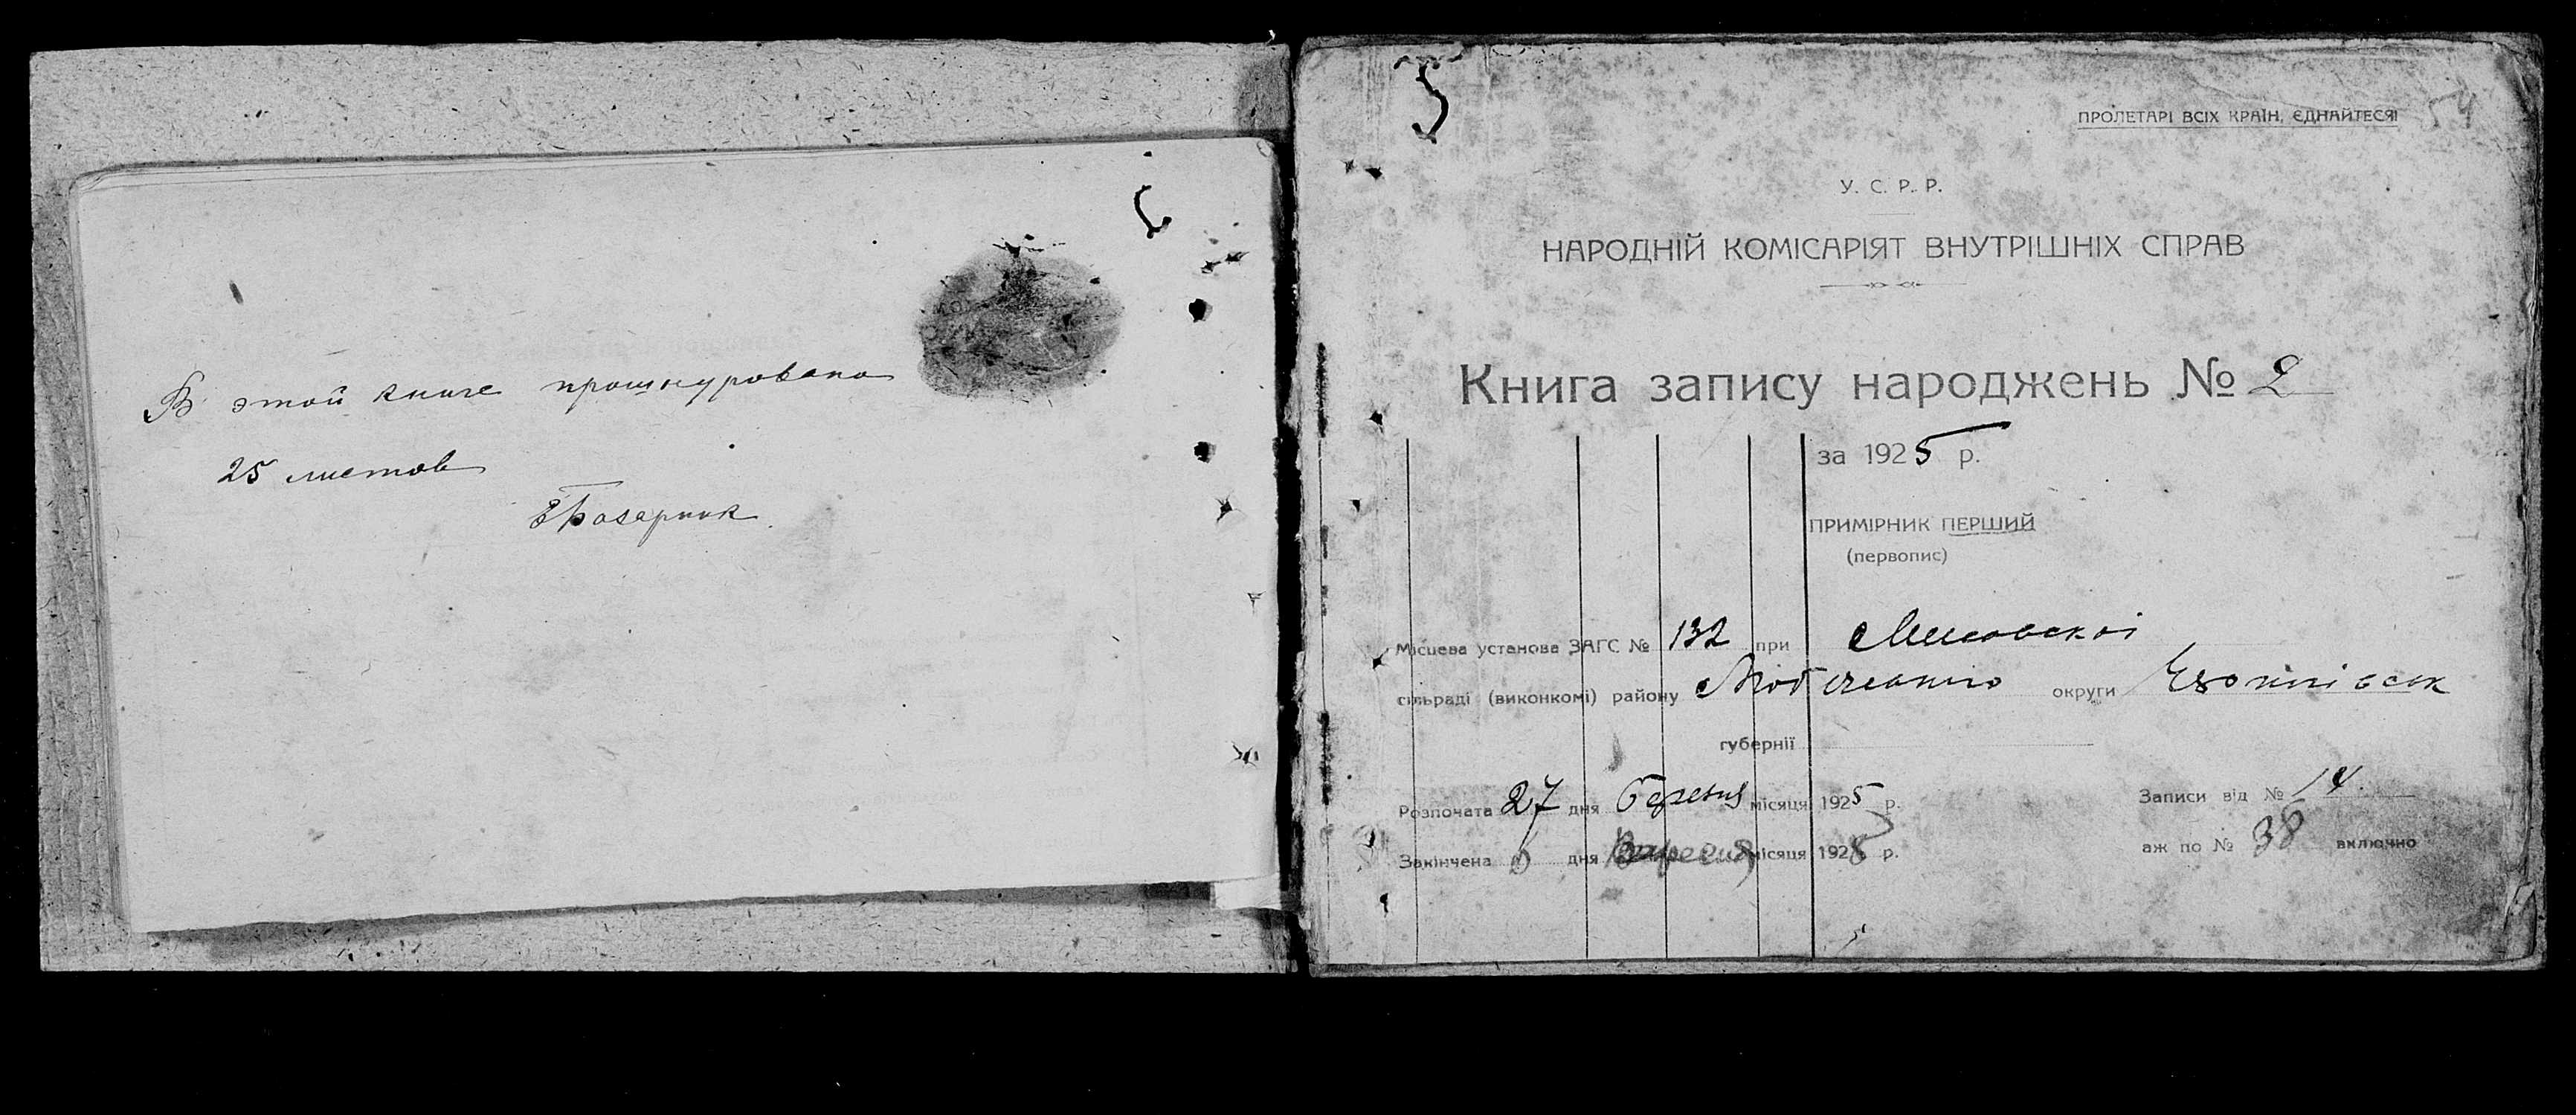 В этой книге прошнуровано
25 листов
54
ПРОЛЕТАРІ ВСІХ КРАЇН, ЄДНАЙТЕСЯ!
У. С. Р. Р.
НАРОДНІЙ КОМІСАРІЯТ ВНУТРІШНІХ СПРАВ
Книга запису народжень № 2
за 1925 р.
ПРИМІРНИК ПЕРШИЙ
(первопис)
Місцева установа ЗАГС № 132 при
сільраді (виконкомі) району округи
губернії
Розпочата 27 дня березня місяця 1925 р. Записи від № 14
Закінчена дня місяця 192 р. аж по № 38 включно